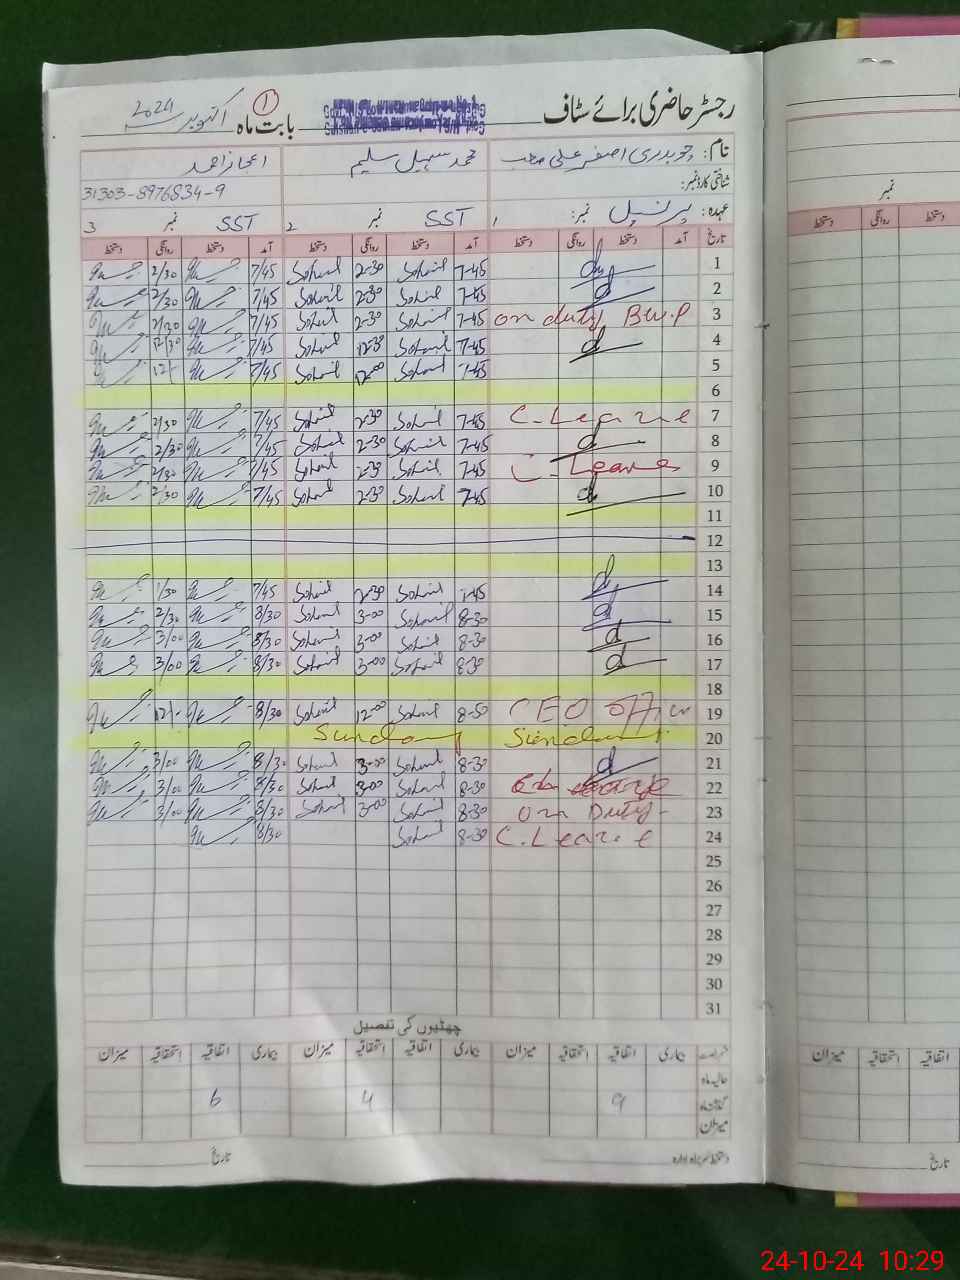 رجسٹر حاضری برائے سٹاف بابت ماہ ① اکتوبر 2024
نام: چوہدری اصغر علی صاحب محمد سہیل سلیم اعجاز احمد
شناختی کارڈ نمبر: 31303-8976834-9
عہدہ: پرنسپل نمبر: 1 SST نمبر 2 SST نمبر 3
تاریخ آمد دستخط روانگی دستخط آمد دستخط روانگی دستخط آمد دستخط روانگی دستخط
1 7-45 Sohail 2-30 Sohail 7/45 2/30
2 7-45 Sohail 2-30 Sohail 7/45 2/30
3 on duty B.w.p 7-45 Sohail 2-30 Sohail 7/45 2/30
4 7-45 Sohail 12-30 Sohail 7/45 12/30
5 7-45 Sohail 12-00 Sohail 7/45 12/-
6
7 C. Leave 7-45 Sohail 2-30 Sohail 7/45 2/30
8 7-45 Sohail 2-30 Sohail 7/45 2/30
9 C. Leave 7-45 Sohail 2-30 Sohail 7/45 2/30
10 7-45 Sohail 2-30 Sohail 7/45 2/30
11
12
13
14 7-45 Sohail 2-30 Sohail 7/45 1/30
15 8-30 Sohail 3-00 Sohail 8/30 2/30
16 8-30 Sohail 3-00 Sohail 8/30 3/00
17 8-30 Sohail 3-00 Sohail 8/30 3/00
18
19 CEO office 8-30 Sohail 12-00 Sohail 8/30 12/-
20 Sunday Sunday
21 8-30 Sohail 3-00 Sohail 8/30 3/00
22 8-30 Sohail 3-00 Sohail 8/30 3/00
23 On Duty - 8-30 Sohail 3-00 Sohail 8/30 3/00
24 C. Leave 8-30 Sohail 8/30
25
26
27
28
29
30
31
چھٹیوں کی تفصیل
رخصت بیماری اتفاقیہ استحقاقیہ میزان بیماری اتفاقیہ استحقاقیہ میزان بیماری اتفاقیہ استحقاقیہ میزان
حالیہ ماہ
گذشتہ ماہ 9 4 6
میزان
دستخط سربراہ ادارہ تاریخ
نمبر
دستخط روانگی دستخط
اتفاقیہ استحقاقیہ میزان
تاریخ
24-10-24 10:29